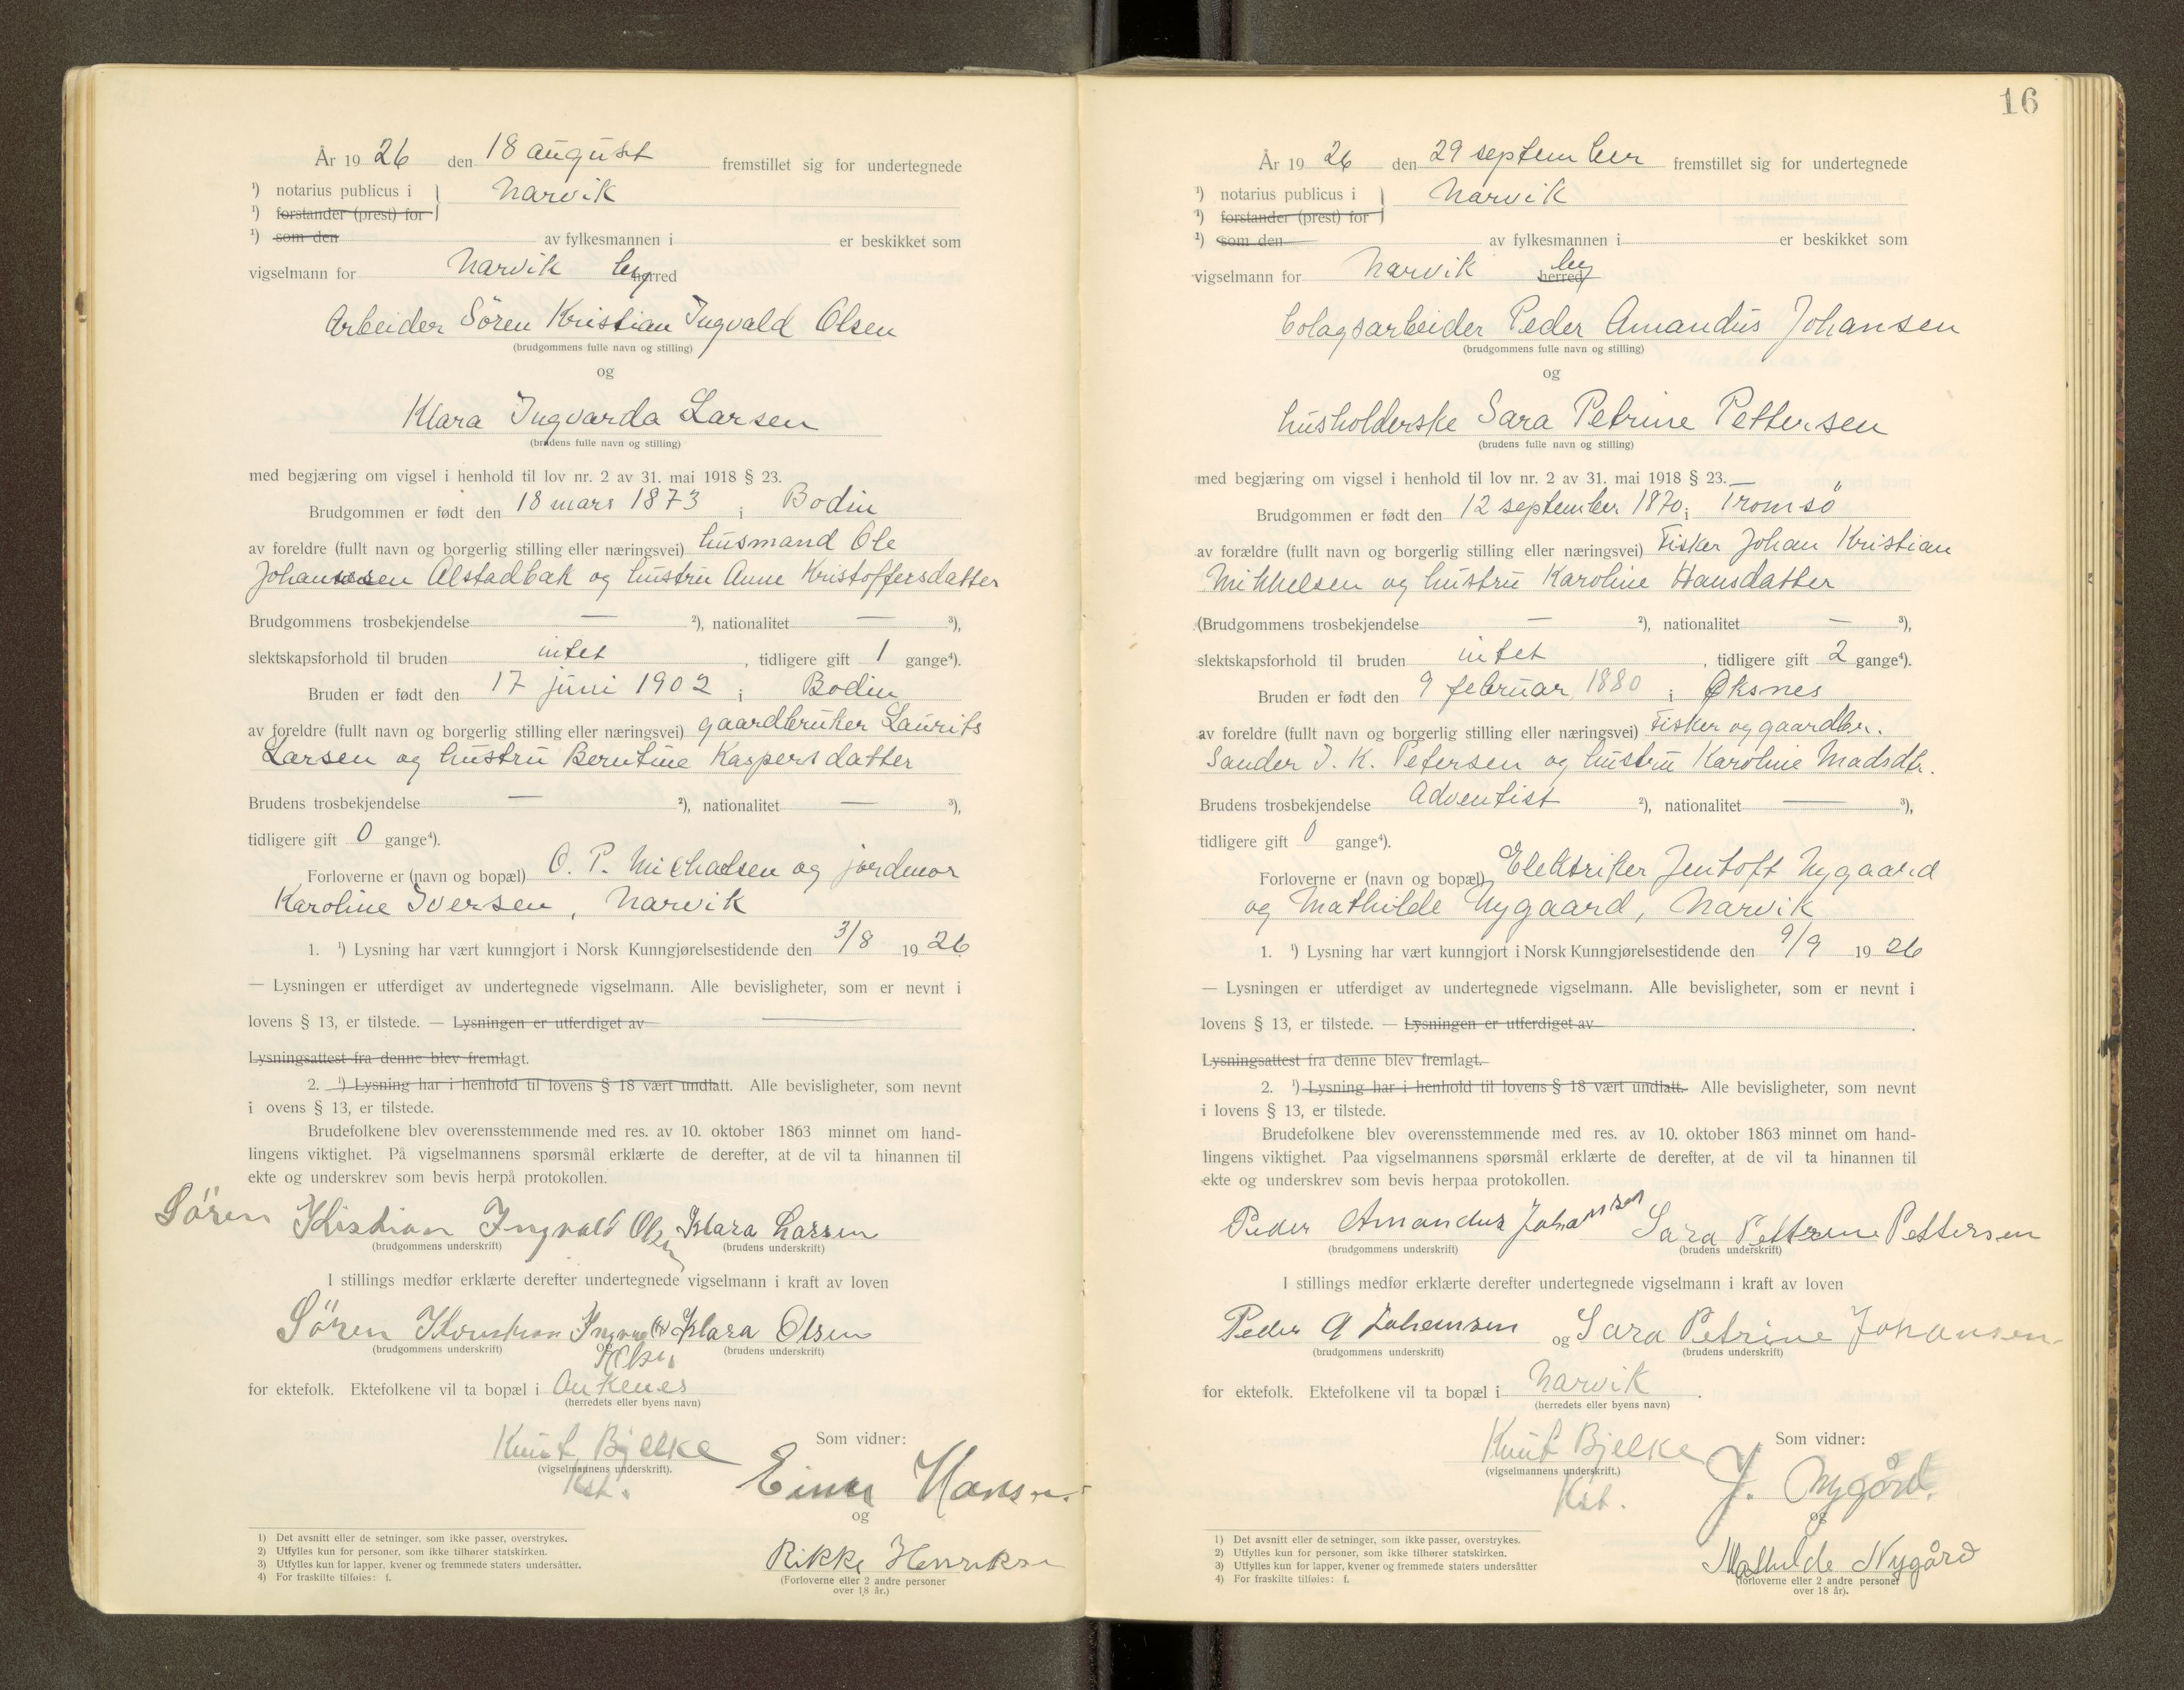 År 19 26 den 18 august fremstillet sig for undertegnede
¹) notarius publicus i } Narvik
¹) forstander (prest) for
¹) som den av fylkesmannen i er beskikket som
vigselmann for Narvik by herred
Arbeider Sören Kristian Ingvald Olsen
(brudgommens fulle navn og stilling)
og
Klara Ingvarda Larsen
(brudens fulle navn og stilling)
med begjæring om vigsel i henhold til lov nr. 2 av 31. mai 1918 § 23.
Brudgommen er født den 18 mars 1873 i Bodin
av foreldre (fullt navn og borgerlig stilling eller næringsvei) husmand Ole
Johanssen Alstadbak og hustru Anne Kristoffersdatter
Brudgommens trosbekjendelse — ²), nationalitet — ³),
slektskapsforhold til bruden intet, tidligere gift 1 gange⁴).
Bruden er født den 17 juni 1902 i Bodin
av foreldre (fullt navn og borgerlig stilling eller næringsvei) gaardbruker Laurits
Larsen og hustru Berntine Kaspersdatter
Brudens trosbekjendelse — ²), nationalitet — ³),
tidligere gift 0 gange⁴).
Forloverne er (navn og bopæl) O. P. Michalsen og jordmor
Karoline Iversen, Narvik
1. ¹) Lysning har vært kunngjort i Norsk Kunngjørelsestidende den 3/8 19 26
— Lysningen er utferdiget av undertegnede vigselmann. Alle bevisligheter, som er nevnt i
lovens § 13, er tilstede. — Lysningen er utferdiget av
Lysningsattest fra denne blev fremlagt.
2. ¹) Lysning har i henhold til lovens § 18 vært undlatt. Alle bevisligheter, som nevnt
i ovens § 13, er tilstede.
Brudefolkene blev overensstemmende med res. av 10. oktober 1863 minnet om hand-
lingens viktighet. På vigselmannens spørsmål erklærte de derefter, at de vil ta hinannen til
ekte og underskrev som bevis herpå protokollen.
Sören Kristian Ingvald Olsen Klara Larsen
(brudgommens underskrift) (brudens underskrift)
I stillings medfør erklærte derefter undertegnede vigselmann i kraft av loven
Sören Kristian Ingvald Olsen og Klara Olsen
(brudgommens underskrift) (brudens underskrift)
for ektefolk. Ektefolkene vil ta bopæl i Ankenes
(herredets eller byens navn)
Knut Bjelke
(vigselmannens underskrift).
Kst.
Som vidner:
Einar Hansen
og
Rikke Henriksen
(Forloverne eller 2 andre personer
over 18 år.)
1) Det avsnitt eller de setninger, som ikke passer, overstrykes.
2) Utfylles kun for personer, som ikke tilhører statskirken.
3) Utfylles kun for lapper, kvener og fremmede staters undersåtter.
4) For fraskilte tilføies: f.
16
År 19 26 den 29 september fremstillet sig for undertegnede
¹) notarius publicus i } Narvik
¹) forstander (prest) for
¹) som den av fylkesmannen i er beskikket som
vigselmann for Narvik by herred
bolagsarbeider Peder Amandus Johansen
(brudgommens fulle navn og stilling)
og
husholderske Sara Petrine Pettersen
(brudens fulle navn og stilling)
med begjæring om vigsel i henhold til lov nr. 2 av 31. mai 1918 § 23.
Brudgommen er født den 12 september 1870 i Tromsö
av forældre (fullt navn og borgerlig stilling eller næringsvei) Fisker Johan Kristian
Mikkelsen og hustru Karoline Hansdatter
(Brudgommens trosbekjendelse — ²), nationalitet — ³),
slektskapsforhold til bruden intet, tidligere gift 2 gange⁴).
Bruden er født den 9 februar 1880 i Øksnes
av foreldre (fullt navn og borgerlig stilling eller næringsvei) Fisker og gaardbr.
Sander J. K. Petersen og hustru Karoline Madsdtr.
Brudens trosbekjendelse Adventist ²), nationalitet — ³),
tidligere gift 0 gange⁴).
Forloverne er (navn og bopæl) Elektriker Jentoft Nygaard
og Mathilde Nygaard, Narvik
1. ¹) Lysning har vært kunngjort i Norsk Kunngjørelsestidende den 9/9 19 26
— Lysningen er utferdiget av undertegnede vigselmann. Alle bevisligheter, som er nevnt i
lovens § 13, er tilstede. — Lysningen er utferdiget av .
Lysningsattest fra denne blev fremlagt.
2. ¹) Lysning har i henhold til lovens § 18 vært undlatt. Alle bevisligheter, som nevnt
i lovens § 13, er tilstede.
Brudefolkene blev overensstemmende med res. av 10. oktober 1863 minnet om hand-
lingens viktighet. Paa vigselmannens spørsmål erklærte de derefter, at de vil ta hinannen til
ekte og underskrev som bevis herpaa protokollen.
Peder Amandus Johansen Sara Pettrine Pettersen
(brudgommens underskrift) (brudens underskrift)
I stillings medfør erklærte derefter undertegnede vigselmann i kraft av loven
Peder A Johansen og Sara Petrine Johansen
(brudgommens underskrift) (brudens underskrift)
for ektefolk. Ektefolkene vil ta bopæl i Narvik.
(herredets eller byens navn)
Knut Bjelke
(vigselmannens underskrift.)
Kst.
Som vidner:
J. Nygård.
og
Mathilde Nygård
(forloverne eller 2 andre personer
over 18 år).
1) Det avsnitt eller de setninger, som ikke passer, overstrykes.
2) Utfylles kun for personer, som ikke tilhører statskirken.
3) Utfylles kun for lapper, kvener og fremmede staters undersåtter
4) For fraskilte tilføies: f.